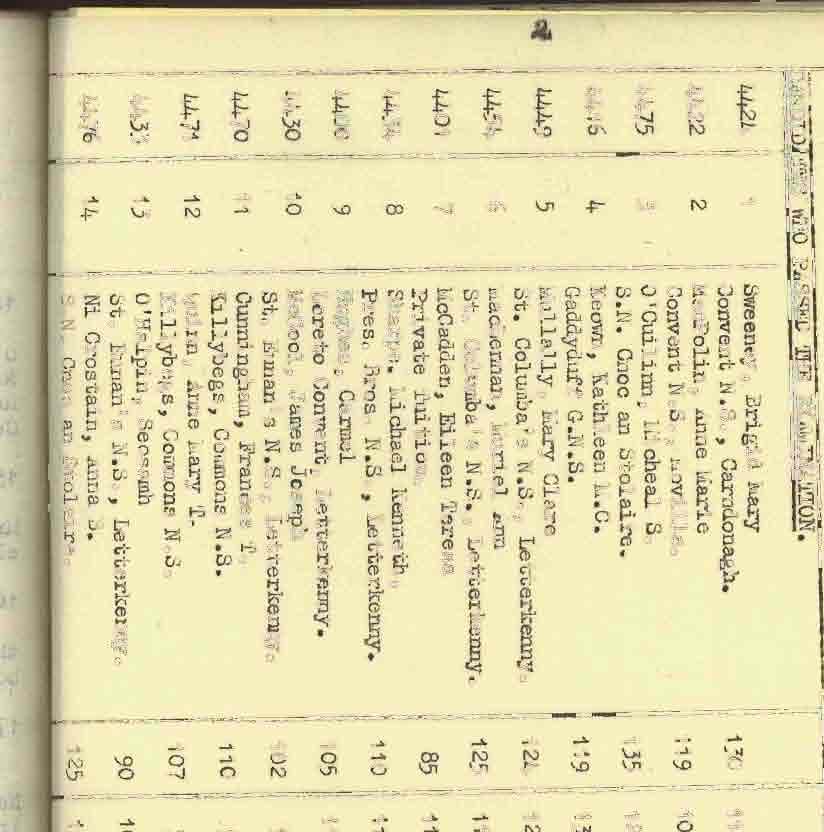 2
WHO PASSED THE EXAMINATION.
4421 1 Sweeney, Brigid Mary 130
Convent N.S., Carndonagh.
4422 2 Anne Marie 119
Convent N.S.,
4475 3 O'Cuilinn, Micheal S. 135
S.N. Cnoc an Stolaire.
4 Keown, Kathleen M.C. 119
Gaddyduff G.N.S.
4449 5 Mullally, Mary Clare
St. Columba's N.S., Letterkenny.
445 6 Muriel Ann 125
St. Columba's N.S., Letterkenny.
4401 7 McCadden, Eileen Teresa 85
Private Tuition.
8 Sharpe, Michael Kenneth. 110
Pres. Bros. N.S., Letterkenny.
9 Hughes, Carmel 105
Loreto Convent, Letterkenny.
4430 10 McCool, James Joseph 102
St. Eunan's N.S., Letterkenny.
4470 11 Cunningham, Frances T. 110
Killybegs, Commons N.S.
4471 12 Anne Mary T. 107
Killybegs, Commons N.S.
13 O'Halpin, Seosamh 90
St. Eunan's N.S., Letterkenny.
4476 14 Ni Crostain, Anna B. 125
S.N. Cnoc an Stolaire.